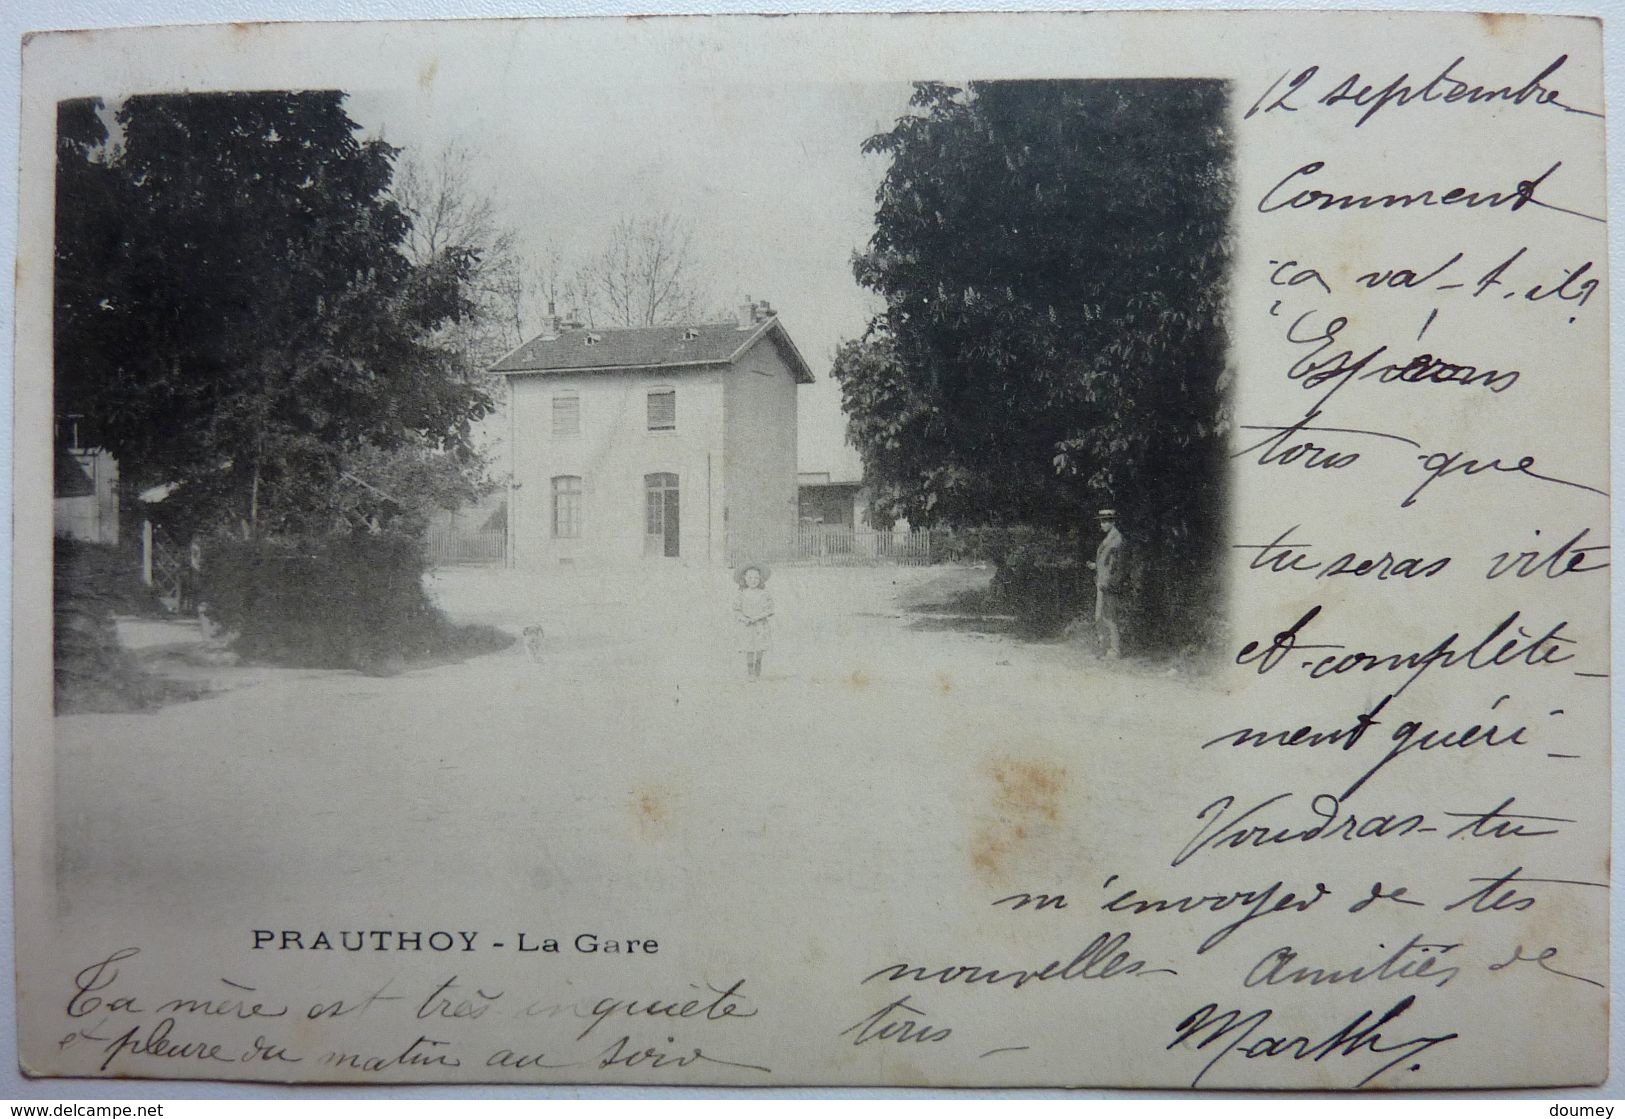 12 septembre
Comment
ça va-t-il?
Espérons
tous que
tu seras vite
et complète-
ment guéri -
Voudras-tu
m'envoyer de tes
nouvelles Amitiés de
tous - Marthe
PRAUTHOY - La Gare
Ta mère est très inquiète
et pleure du matin au soir
delcampe.net
doumey